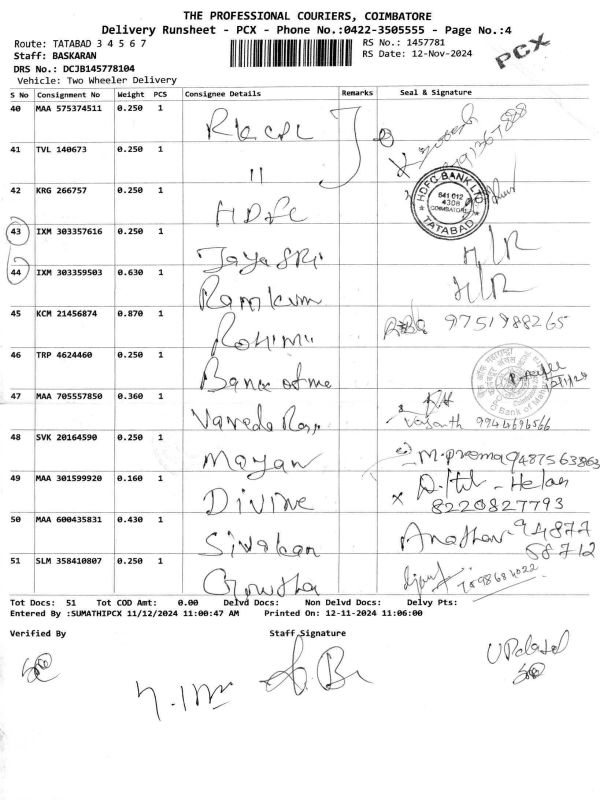 THE PROFESSIONAL COURIERS, COIMBATORE
Delivery Runsheet - PCX - Phone No.:0422-3505555 - Page No.:4
Route: TATABAD 3 4 5 6 7
RS No.: 1457781
Staff: BASKARAN
RS Date: 12-Nov-2024
PCX
DRS No.: DCJB145778104
Vehicle: Two Wheeler Delivery
S No Consignment No Weight PCS Consignee Details Remarks Seal & Signature
40 MAA 575374511 0.250 1
41 TVL 140673 0.250 1 11
42 KRG 266757 0.250 1 HDFC
HDFC BANK LTD
641 012
4308
COIMBATORE
TATABAD
43 IXM 303357616 0.250 1 Jaya SRi H/R
44 IXM 303359503 0.630 1 Ramkum H/R
45 KCM 21456874 0.870 1 Rohini 9751988265
46 TRP 4624460 0.250 1 Bank of ma
Bank of Maha
47 MAA 705557850 0.360 1 Varada Raj
Vasanth 9944696566
48 SVK 20164590 0.250 1 Mayan M.prema 9487563863
49 MAA 301599920 0.160 1 Divine
8220827793
50 MAA 600435831 0.430 1 Sivakan 94877
58712
51 SLM 358410807 0.250 1 Gowtha
Tot Docs: 51 Tot COD Amt: 0.00 Delvd Docs: Non Delvd Docs: Delvy Pts:
Entered By :SUMATHIPCX 11/12/2024 11:00:47 AM Printed On: 12-11-2024 11:06:00
Verified By Staff Signature
UPdated